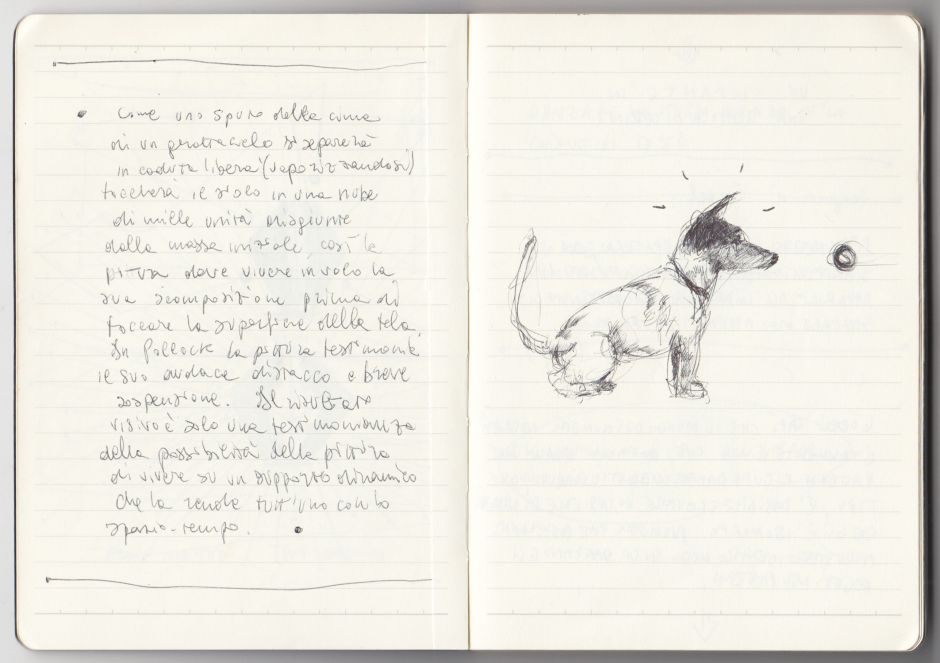 Come uno sputo dalla cima
di un grattacielo si separerà
in caduta libera (vaporizzandosi)
toccherà il suolo in una nube
di mille unità disgiunte
dalla massa iniziale, così la
pittura deve vivere in volo la
sua scomposizione prima di
toccare la superficie della tela.
In Pollock la pittura testimonia
il suo audace distacco e breve
sospensione. Il risultato
visivo è solo una testimonianza
della possibilità della pittura
di vivere su un supporto dinamico
che la rende tutt'uno con lo
spazio-tempo.